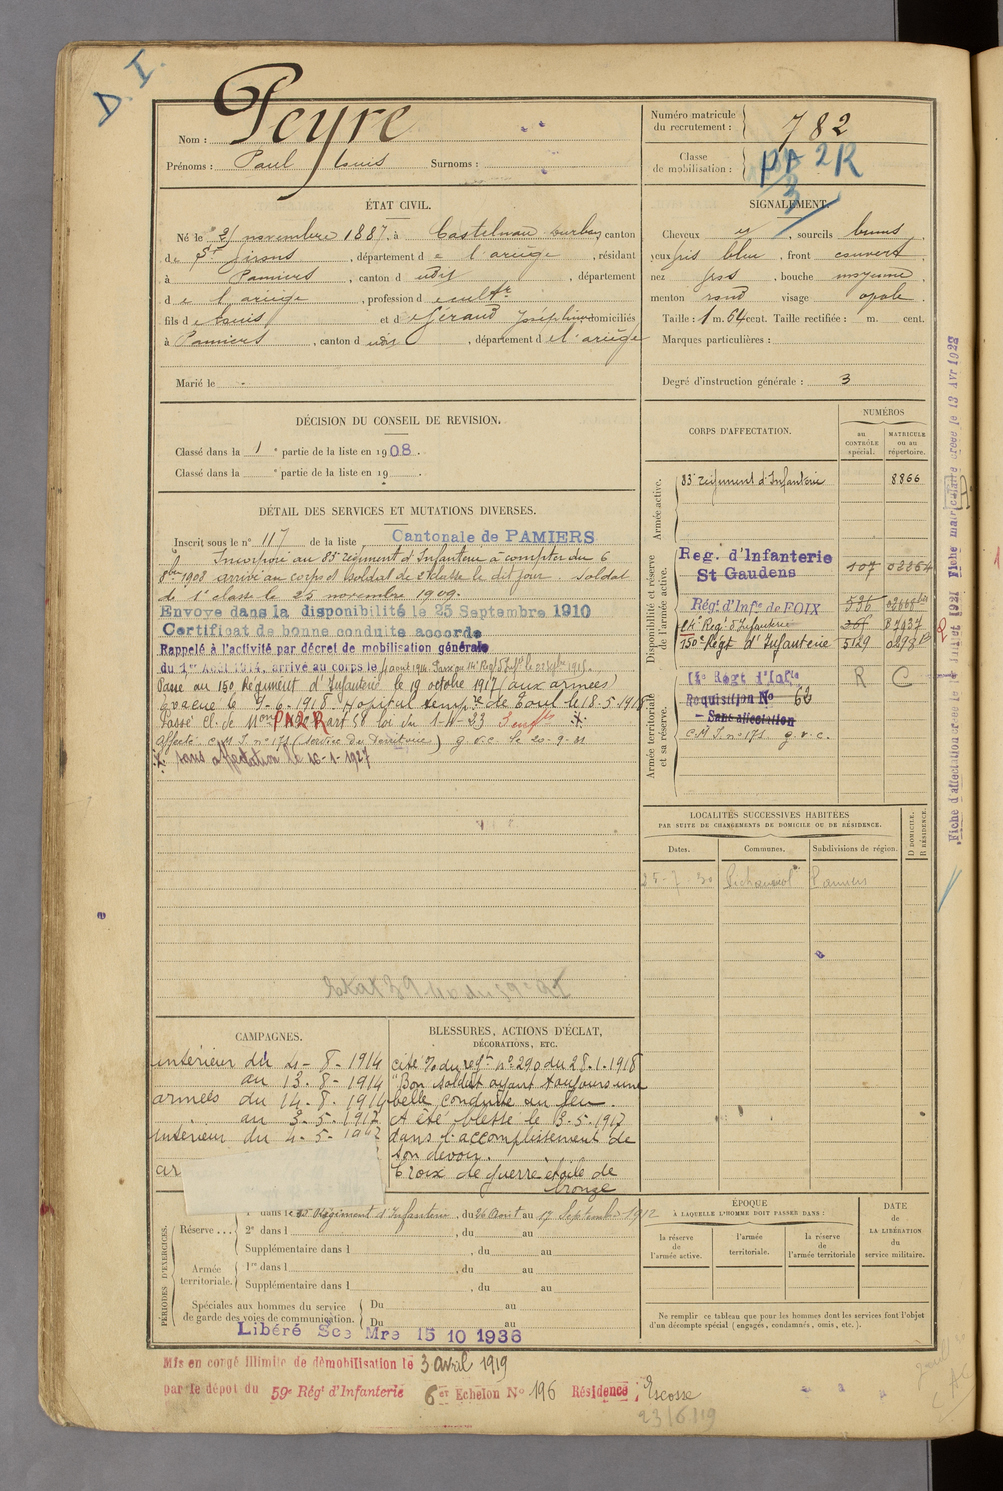 D. I.
Nom : Peyre
Prénoms : Paul Louis Surnoms :
Numéro matricule du recrutement : 782
Classe de mobilisation : PA 2R
3
ÉTAT CIVIL.
Né le 21 novembre 1887, à Castelnau Durban, canton
de St Girons, département de l'ariège, résidant
à Pamiers, canton d udit, département
de l'ariège, profession de cultr
fils de Louis et de Géraud Joséphine domiciliés
à Pamiers, canton d udit, département de l'ariège
Marié le -
SIGNALEMENT.
Cheveux et, sourcils bruns
yeux gris bleu, front couvert,
nez gros, bouche moyenne,
menton rond visage ovale.
Taille : 1 m. 64 cent. Taille rectifiée : m. cent.
Marques particulières :
Degré d'instruction générale : 3
DÉCISION DU CONSEIL DE REVISION.
Classé dans la 1e partie de la liste en 1908.
Classé dans la e partie de la liste en 19 .
DÉTAIL DES SERVICES ET MUTATIONS DIVERSES.
Inscrit sous le n° 117 de la liste Cantonale de PAMIERS
Incorporé au 83e régiment d'Infanterie à compter du 6
8bre 1908 arrivé au corps et soldat de 2e classe le dit jour. Soldat
de 1e classe le 25 novembre 1909.
Envoyé dans la disponibilité le 25 Septembre 1910
Certificat de bonne conduite accordé
Rappelé à l'activité par décret de mobilisation générale
du 1er Août 1914, arrivé au corps le 4 aout 1914. Passé au 14e Reg d'Infie le
Passé au 150 Régiment d'Infanterie le 19 octobre 1917 (aux armées)
Evacué le 9-6-1918 Hopital temp.re de Toul le 18-5-1918
Passé cl. de Mon PA2R art 58 loi du 1-4-23 3 enfts
Affecté C.M.I. n° 171 (Service du Territoire) g.v.c. le 20-9-31
sans affectation le 16-1-1927
CORPS D'AFFECTATION.
NUMÉROS
au CONTRÔLE spécial.
MATRICULE ou au répertoire.
Armée active.
83e régiment d'Infanterie 8866
Disponibilité et réserve de l'armée active.
Reg. d'Infanterie
St Gaudens 107
Régt d'Infie de FOIX 536
14e Reg. d'Infanterie
150e Régt d'Infanterie 5129
Armée territoriale et sa réserve.
Régt d'Infie R C
Requisition No 62
- Sans affectation
C.M.I. n° 171. g.v.c.
Fiche d'affectation créée le Juillet 1921 Fiche matriculaire créée le 13 Avr 1928
LOCALITÉS SUCCESSIVES HABITÉES
PAR SUITE DE CHANGEMENTS DE DOMICILE OU DE RÉSIDENCE.
Dates. Communes. Subdivisions de région. D DOMICILE. R RÉSIDENCE.
25-7-30 Pamiers
CAMPAGNES.
intérieur du 4-8-1914
au 13.8-1914
armées du 14.8.1914
au 3.5.1917
intérieur du 4.5.1917
ar
BLESSURES, ACTIONS D'ÉCLAT,
DÉCORATIONS, ETC.
cité o/ du regt n° 290 du 28.1.1918
"Bon soldat ayant toujours une
belle conduite au feu.
A été blessé le 3.5.1917
dans l'accomplissement de
son devoir.
Croix de guerre étoile de
bronze
PÉRIODES D'EXERCICES.
Réserve ... 1re dans le Régiment d'Infanterie, du 26 Aout au 17 Septembre 1912
2e dans l , du au
Supplémentaire dans l , du au
Armée territoriale. 1re dans l , du au
Supplémentaire dans l , du au
Spéciales aux hommes du service de garde des voies de communication. Du au
Du au
Libéré Sce Mre 15 10 1936
ÉPOQUE
À LAQUELLE L'HOMME DOIT PASSER DANS :
la réserve de l'armée active.
l'armée territoriale.
la réserve de l'armée territoriale
DATE de LA LIBÉRATION du service militaire.
Ne remplir ce tableau que pour les hommes dont les services font l'objet
d'un décompte spécial (engagés, condamnés, omis, etc.).
Mis en congé illimité de démobilisation le 3 avril 1919
par le dépôt du 59e Régt d'Infanterie 6er Echelon No 196 Résidence ; Escosse
23/6/19